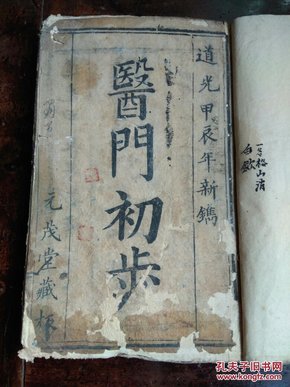 道光甲辰年新鐫
醫門初步
元茂堂藏板
白歛
孔夫子旧书网